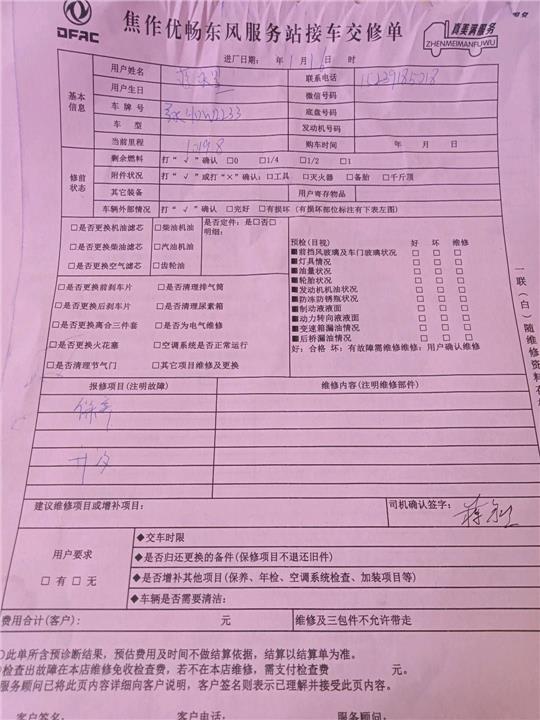 DFAC
焦作优畅东风服务站接车交修单
真美满服务
ZHENMEIMANFUWU
进厂日期: 年1月16日 时
基本信息
用户姓名 联系电话
用户生日 微信号码
车牌号 底盘号码
车型 发动机号码
当前里程 购车时间 年 月 日
修前状态
剩余燃料 打“√”确认 □0 □1/4 □1/2 □1
附件状况 打“√”或打“×”确认: □工具 □灭火器 □备胎 □千斤顶
其它装备 用户寄存物品
车辆外部情况 打“√”确认 □完好 □有损坏 (有损坏部位标注有下表左图)
□是否更换机油滤芯 □柴油机油 是否定件: 是□否□
□是否更换柴油滤芯 □汽油机油 明细:
□是否更换空气滤芯 □齿轮油
□是否更换前刹车片 □是否清理排气筒
□是否更换后刹车片 □是否清理尿素箱
□是否更换离合三件套 □是否为电气维修
□是否更换火花塞 □空调系统是否正常运行
□是否清理节气门 □其它项目维修及更换
预检(目视) 好 坏 维修
■前挡风玻璃及车门玻璃状况 □ □ □
■灯具情况 □ □ □
■油量状况 □ □ □
■轮胎状况 □ □ □
■发动机机油状况 □ □ □
■防冻防锈瓶状况 □ □ □
■制动液液面 □ □ □
■动力转向液液面 □ □ □
■变速箱漏油情况 □ □ □
■后桥漏油情况 □ □ □
好: 合格 坏: 有故障需维修维修: 用户确认维修
报修项目(注明故障) 维修内容(注明维修部件)
保养
建议维修项目或增补项目: 司机确认签字:
用户要求
□ 有 □ 无
◆交车时限
◆是否归还更换的备件(保修项目不退还旧件)
◆是否增补其他项目(保养、年检、空调系统检查、加装项目等)
◆车辆是否需要清洁:
费用合计(客户): 元 维修及三包件不允许带走
此单所含预诊断结果, 预估费用及时间不做结算依据, 结算以结算单为准。
检查出故障在本店维修免收检查费, 若不在本店维修, 需支付检查费 元。
服务顾问已将此页内容详细向客户说明, 客户签名则表示已理解并接受此页内容。
客户签名: 客户电话: 服务顾问:
一联(白)随维修资料存